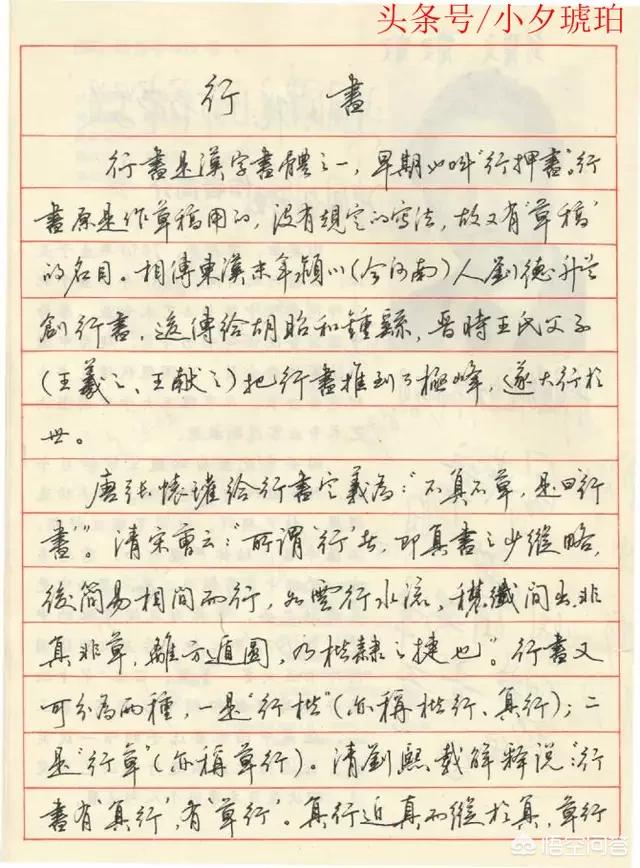 头条号/小夕琥珀
行 書
行書是漢字書體之一，早期也叫“行押書”。行
書原是作草稿用的，没有規定的寫法，故又有“草稿”
的名目。相傳東漢末年潁川（今河南）人劉德升首
創行書，遂傳給胡昭和鍾繇，晋時王氏父子
（王羲之、王献之）把行書推到了極峰，遂大行於
世。
唐張懷瓘給行書定義為：“不真不草，是曰行
書”。清宋曹云：“所謂行者，即真書之少縱略，
後簡易相間而行，如雲行水流，穠纖間出，非
真非草，離方遁圓，乃楷隸之捷也”。行書又
可分為兩種，一是“行楷”（亦稱楷行、真行）；二
是“行草”（亦稱草行）。清劉熙載解釋説：“行
書有‘真行’，有‘草行’。真行近真而縱於真，草行
悟空问答